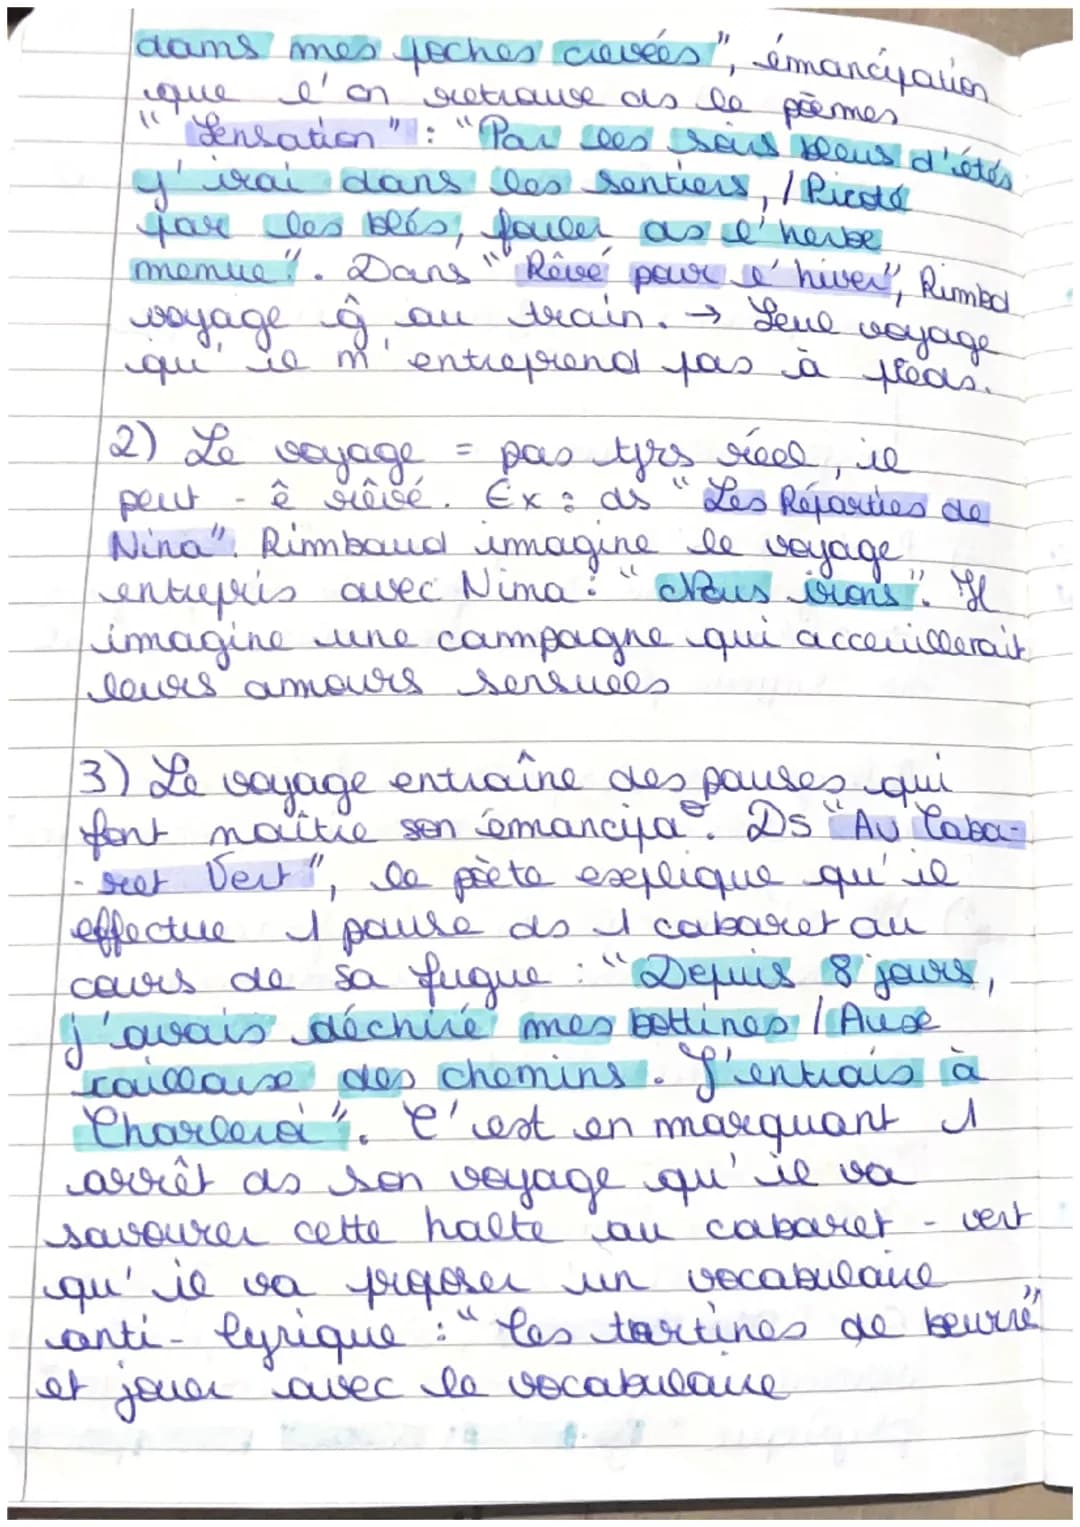 dans mes poches crevées", émancipation
que l'on retrouve ds le poèmes
"Sensation" : "Par les soirs bleus d'étés
j'irai dans les sentiers, / Picoté
par les blés, fouler ds l'herbe
menue". Dans "Rêvé pour l'hiver", Rimbd
voyage ĝ au train. → Seul voyage
qu'il n'entreprend pas à pieds.
2) Le voyage = pas tjrs réel, il
peut-ê rêvé. Ex : ds "Les Réparties de
Nina". Rimbaud imagine le voyage
entrepris avec Nina : "Nous irons". Il
imagine une campagne qui acceuillerait
leurs amours sensuels
3) Le voyage entraîne des pauses qui
font naître son émancipaº. Ds "Au Caba-
-ret Vert", le poète explique qu'il
effectue 1 pause ds 1 cabaret au
cours de sa fugue : "Depuis 8 jours,
j'avais déchiré mes bottines / Aux
cailloux des chemins. J'entrais à
Charleroi". C'est en marquant 1
arrêt ds son voyage qu'il va
savourer cette halte au cabaret-vert
qu'il va proposer un vocabulaire
anti-lyrique : "les tartines de beurre"
et jouer avec le vocabulaire